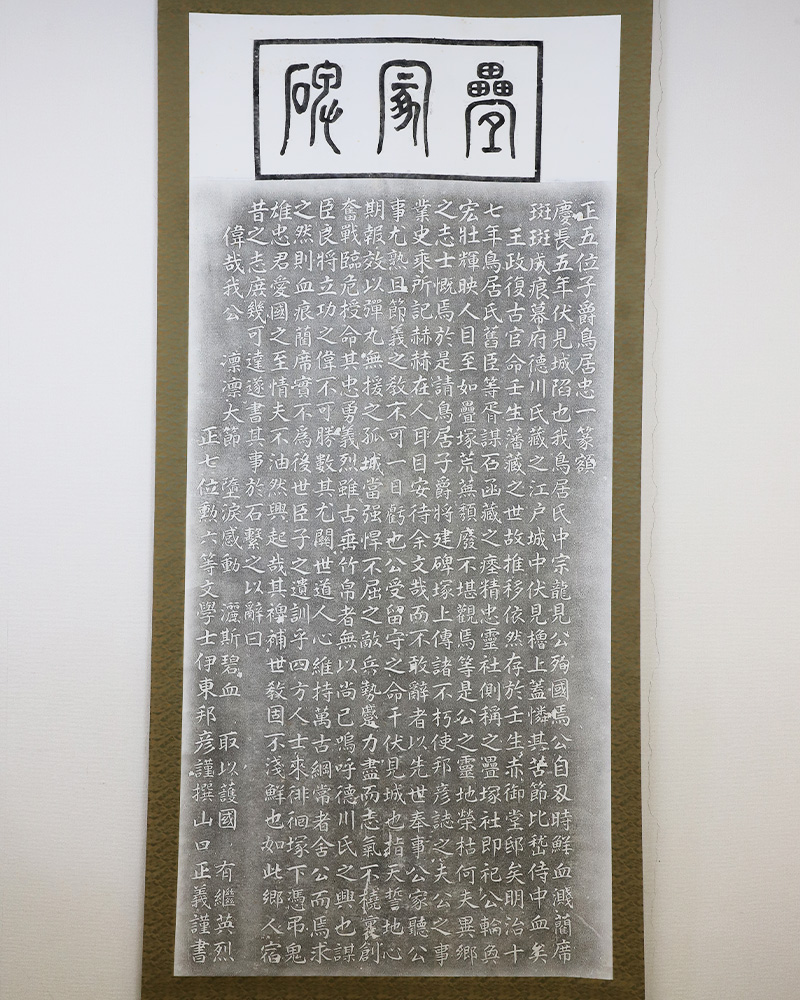 疊冢碑
正五位子爵鳥居忠一篆額
慶長五年伏見城陷也我鳥居氏中宗龍見公殉國焉公自刃時鮮血濺藺席
斑斑成痕幕府德川氏藏之江戸城中伏見櫓上蓋憐其苦節比嵇侍中血矣
王政復古官命壬生藩藏之世故推移依然存於壬生赤御堂邸矣明治十
七年鳥居氏舊臣等胥謀石函藏之瘞精忠靈社側稱之疊塚社即祀公輪奐
宏壯輝映人目至如疊塚荒蕪頽廢不堪觀焉等是公之靈地榮枯何夫異鄉
之志士慨焉於是請鳥居子爵將建碑塚上傳諸不朽使邦彦誌之夫公之事
業史乘所記赫赫在人耳目安待余文哉而不敢辭者以先世奉事公家聽公
事尤熟且節義之教不可一日虧也公受留守之命干伏見城也指天誓地心
期報效以彈丸無援之孤城當强悍不屈之敵兵勢蹙力盡而志氣不撓裹創
奮戰臨危授命其忠勇義烈雖古垂竹帛者無以尚已嗚呼德川氏之興也謀
臣良將立功之偉不可勝數其尤關世道人心維持萬古綱常者舍公而焉求
之然則血痕藺席實不爲後世臣子之遺訓乎四方人士來徘徊塚下憑弔鬼
雄忠君愛國之至情夫不油然興起哉其裨補世敎固不淺鮮也如此鄉人宿
昔之志庶幾可達遂書其事於石繫之以辭曰
偉哉我公 凛凛大節 墮淚感動 灑斯碧血 取以護國 有繼英烈
正七位勳六等文學士伊東邦彦謹撰山口正義謹書